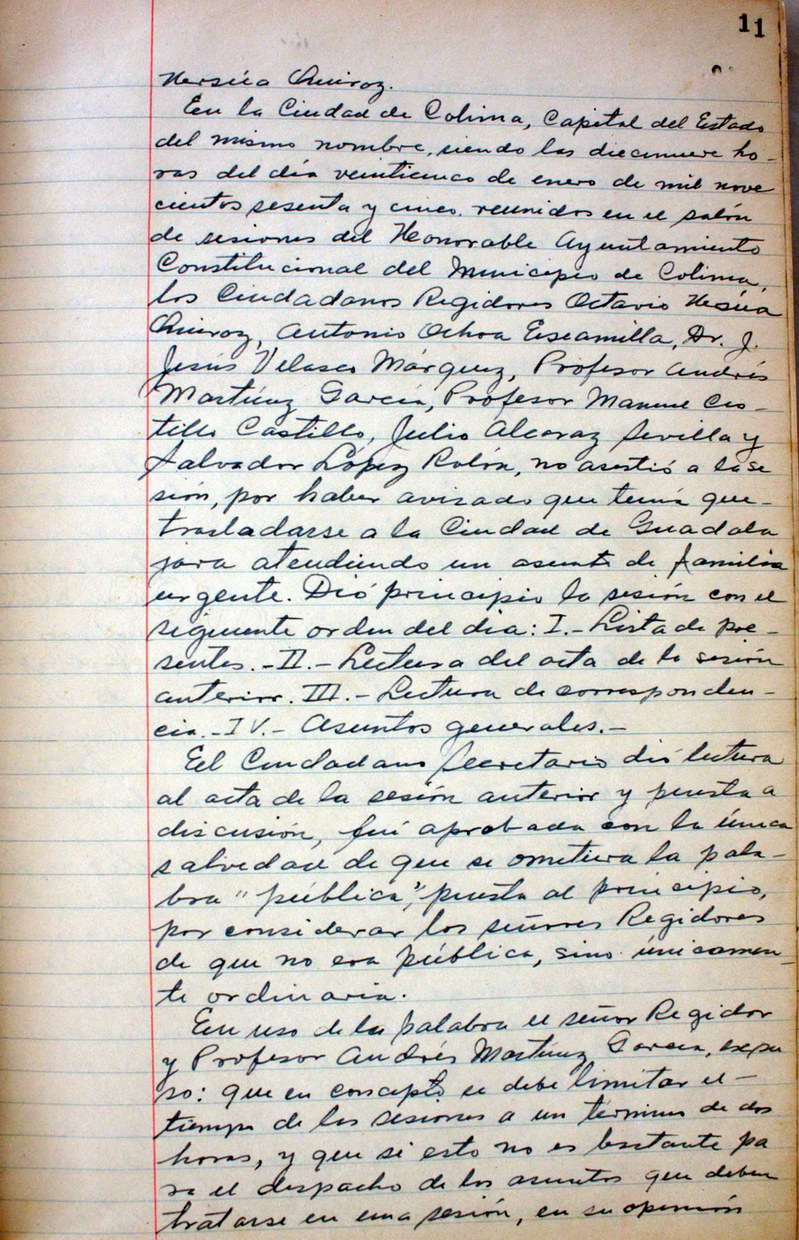 11
Mersiea Quiroz.
En la Ciudad de Colima, Capital del Estado
del mismo nombre, siendo las diecinueve ho-
ras del día veinticinco de enero de mil nove
cientos sesenta y cinco. reunidos en el salón
de sesiones del Honorable Ayuntamiento
Constitucional del Municipio de Colima,
los Ciudadanos Regidores Octavio
Quiroz, Antonio Ochoa Escamilla, Dr. J.
Jesús Velasco Márquez, Profesor Andrés
Martínez García, Profesor Manuel Cas-
tillo Castillo, Julio Alcaraz Sevilla y
Salvador López Rolón, no asistió a la se
sión, por haber avisado que tenía que-
trasladarse a la Ciudad de Guadala
jara atendiendo un asunto de familia
urgente. Dió principio la sesión con el
siguiente orden del dia: I.- Lista de pre-
sentes.-II.- Lectura del acta de la sesión
anterior. III.- Lectura de corresponden-
cia.-IV.- Asuntos generales.-
El Ciudadano Secretario dió lectura
al acta de la sesión anterior y puesta a
discusión, fué aprobada con la única
salvedad de que se omitiera la pala-
bra "pública", puesta al principio,
por considerar los señores Regidores
de que no era pública, sino únicamen-
te ordinaria.
En uso de la palabra el señor Regidor
y Profesor Andrés Martínez García, expu
so: que en concepto se debe limitar el-
tiempo de las sesiones a un término de dos
horas, y que si esto no es bastante pa
ra el despacho de los asuntos que deben
tratarse en una sesión, en su opinión